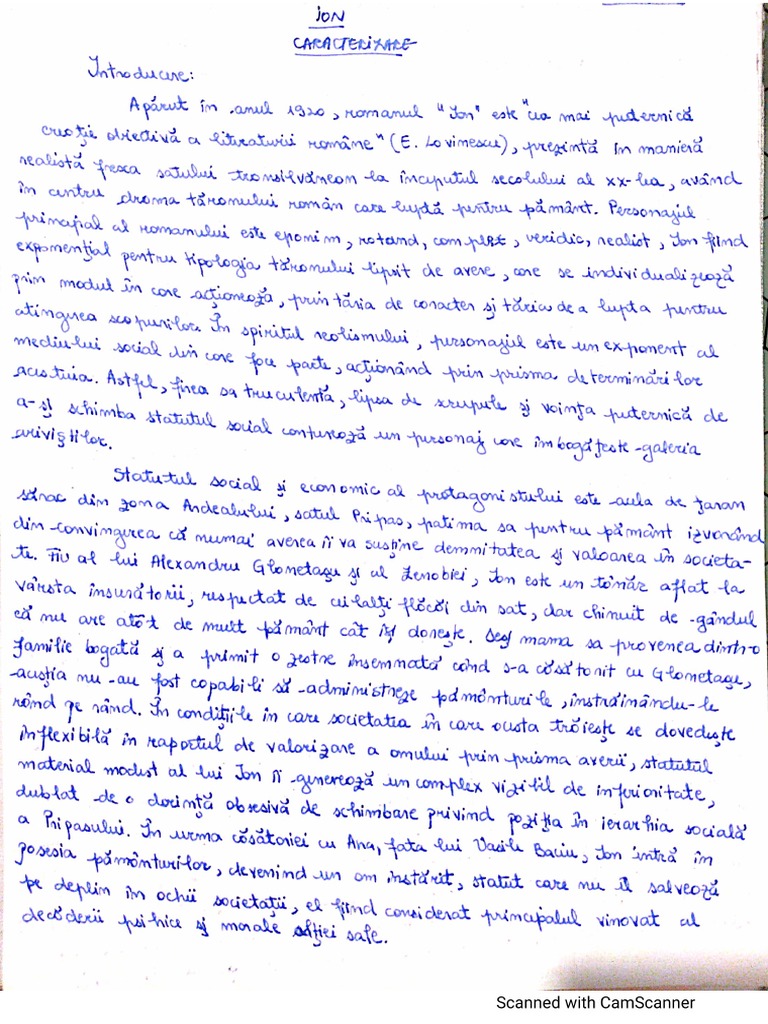 ION
CARACTERIZARE
Introducere:
Apărut în anul 1920, romanul "Ion" este "cea mai puternică
creație obiectivă a literaturii române" (E. Lovinescu), prezintă în manieră
realistă fresca satului transilvănean la începutul secolului al XX-lea, având
în centru drama țăranului român care luptă pentru pământ. Personajul
principal al romanului este eponim, rotund, complex, veridic, realist, Ion fiind
exponențial pentru tipologia țăranului lipsit de avere, care se individualizează
prin modul în care acționează, prin tăria de caracter și tăria de a lupta pentru
atingerea scopurilor. În spiritul realismului, personajul este un exponent al
mediului social din care face parte, acționând prin prisma determinărilor
acestuia. Astfel, firea sa truculentă, lipsa de scrupule și voința puternică de
a-și schimba statutul social conturează un personaj care îmbogățește galeria
ariviștilor.
Statutul social și economic al protagonistului este acela de țăran
sărac din zona Ardealului, satul Pripas, patima sa pentru pământ izvorând
din convingerea că numai averea îi va susține demnitatea și valoarea în societa-
te. Fiu al lui Alexandru Glanetașu și al Zenobiei, Ion este un tânăr aflat la
vârsta însurătorii, respectat de ceilalți flăcăi din sat, dar chinuit de gândul
că nu are atât de mult pământ cât își dorește. Deși mama sa provenea dintr-o
familie bogată și a primit o zestre însemnată când s-a căsătorit cu Glanetașu,
aceștia nu au fost capabili să administreze pământurile, înstrăinându-le
rând pe rând. În condițiile în care societatea în care acesta trăiește se dovedește
inflexibilă în raportul de valorizare a omului prin prisma averii, statutul
material modest al lui Ion îi generează un complex vizibil de inferioritate,
dublat de o dorință obsesivă de schimbare privind poziția în ierarhia socială
a Pripasului. În urma căsătoriei cu Ana, fata lui Vasile Baciu, Ion intră în
posesia pământurilor, devenind un om înstărit, statut care nu îl salvează
pe deplin în ochii societății, el fiind considerat principalul vinovat al
decăderii psihice și morale soției sale.
Scanned with CamScanner